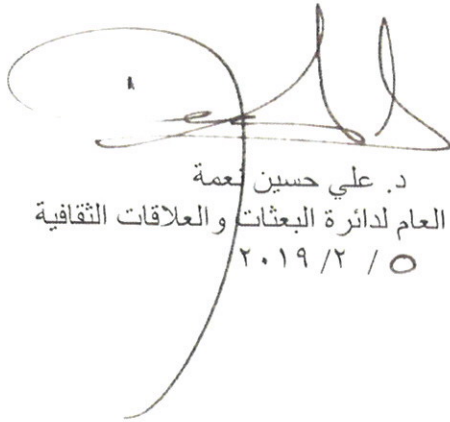 د. علي حسين نعمة
العام لدائرة البعثات والعلاقات الثقافية
٥ / ٢/ ٢٠١٩